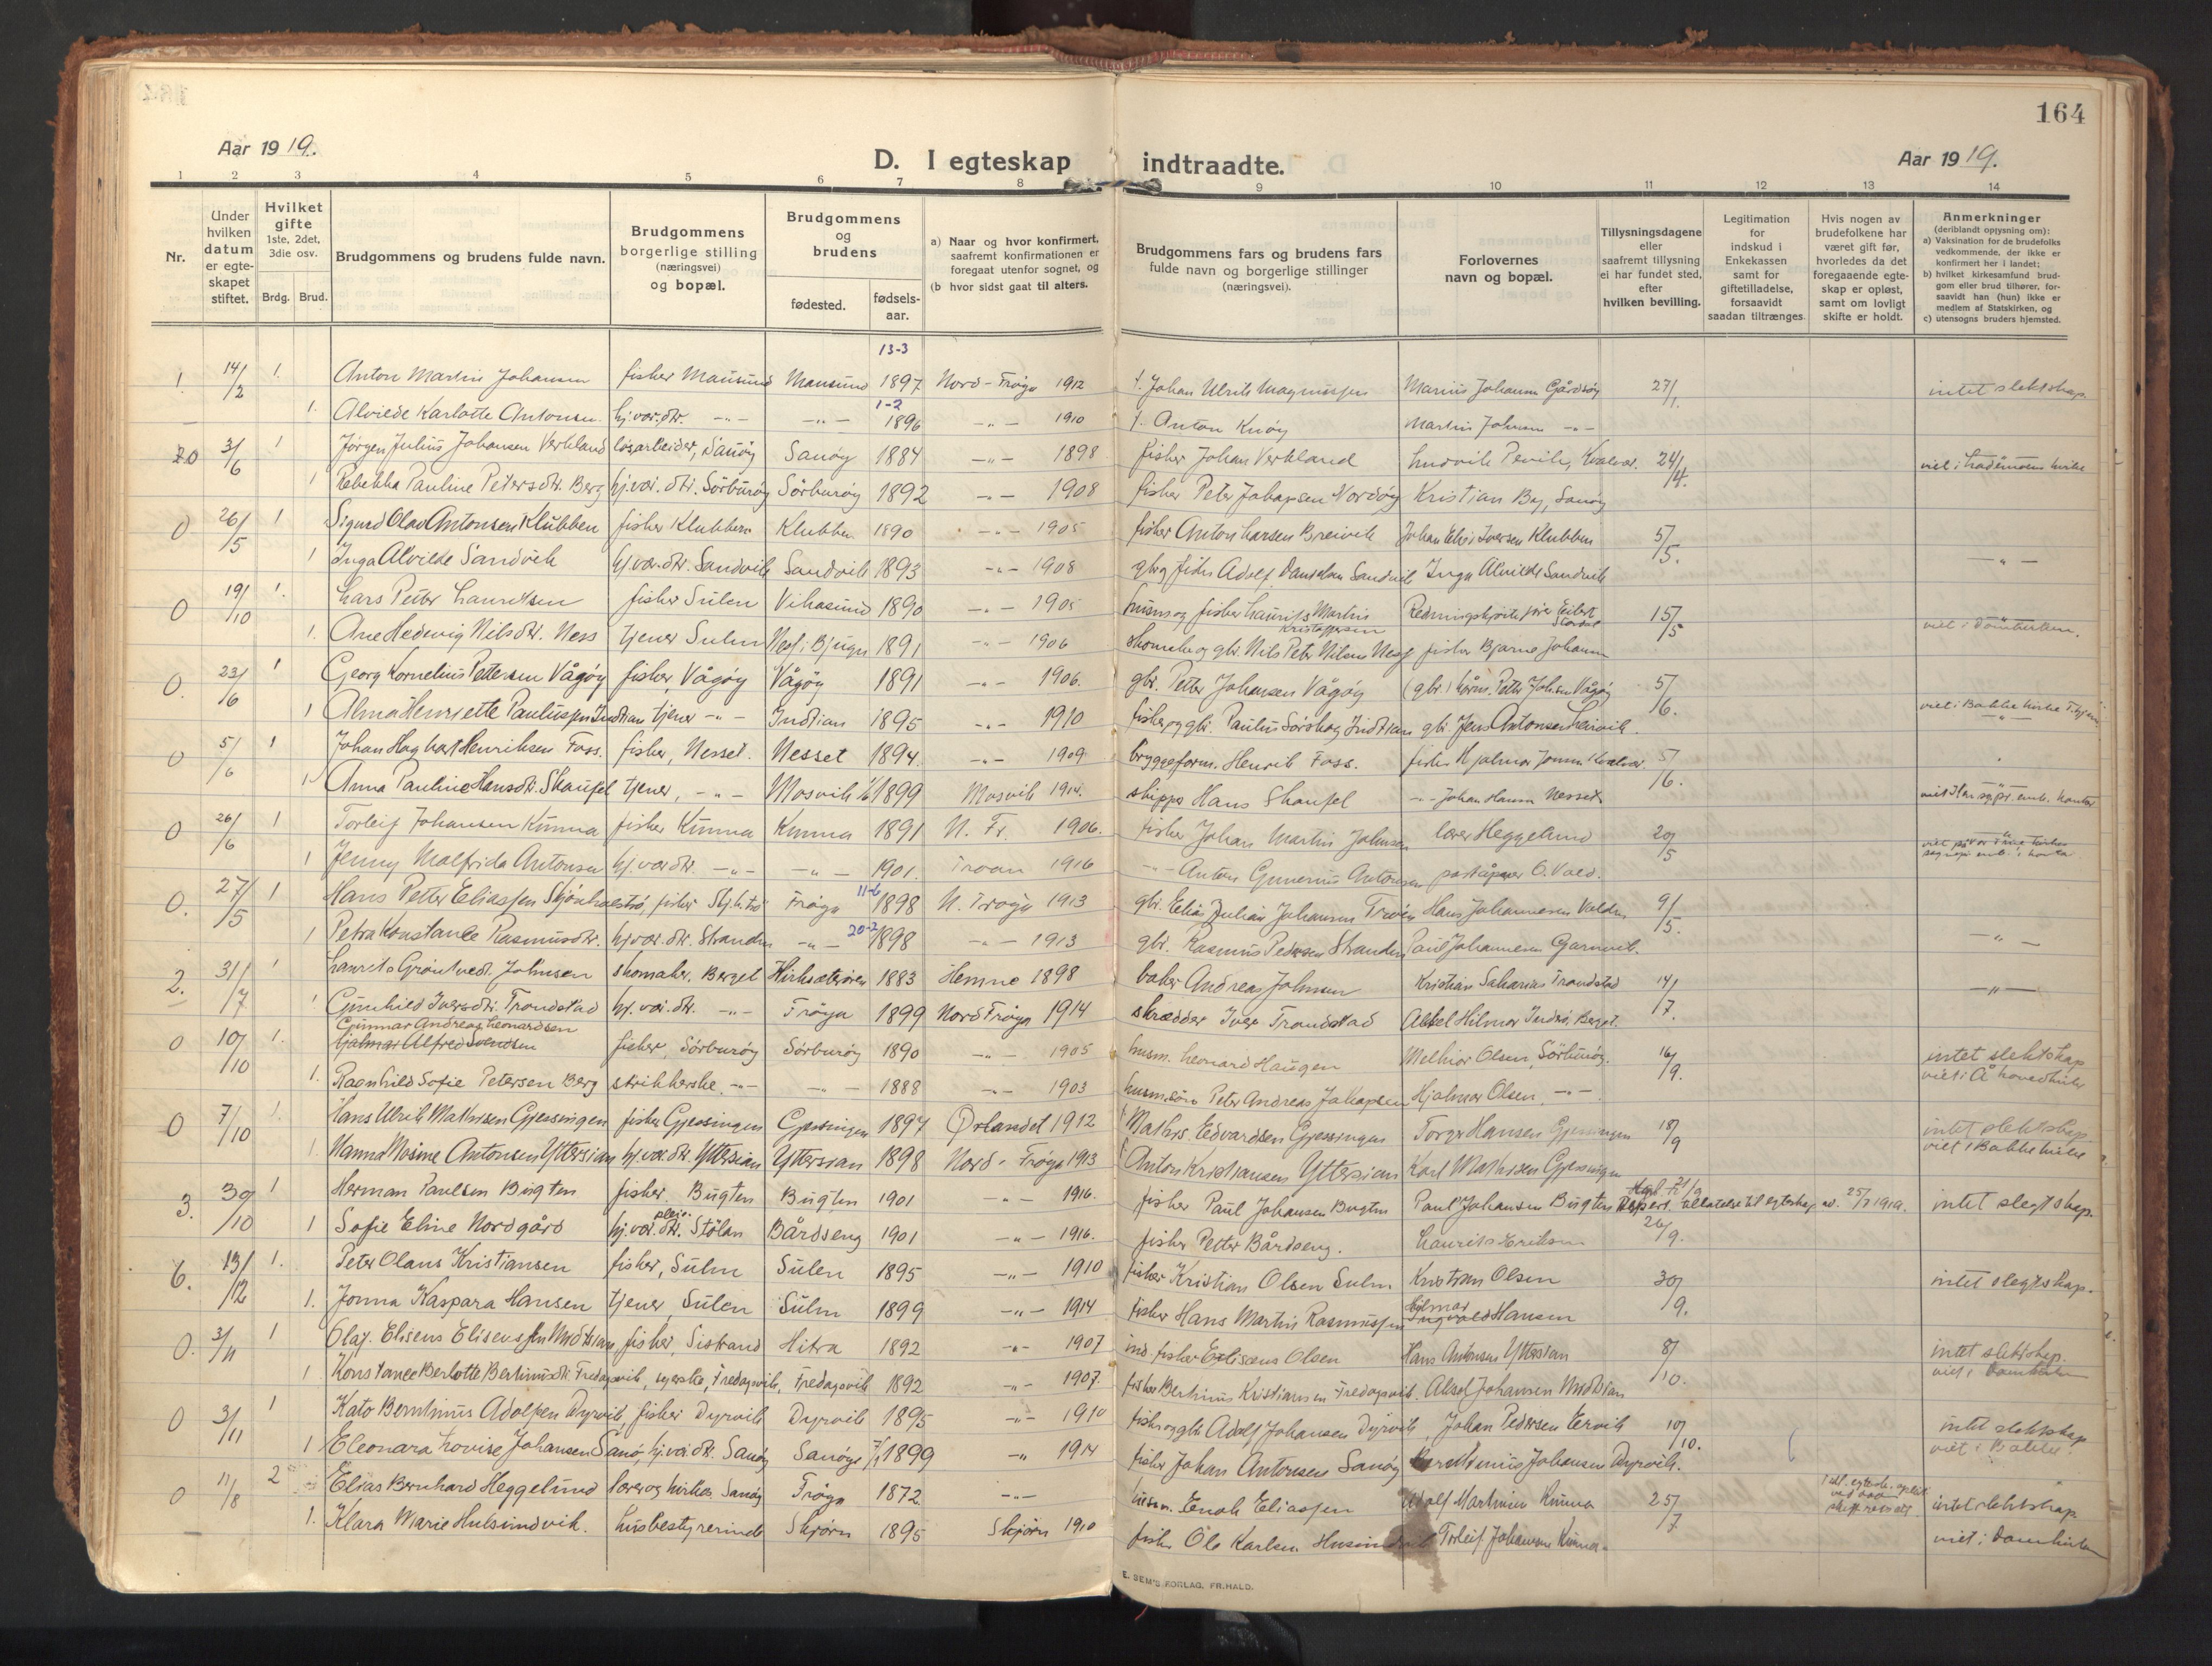 164
Aar 1919.
D. I egteskap indtraadte.
Aar 1919.
1 2 3 4 5 6 7 8 9 10 11 12 13 14
Nr.
Under hvilken datum er egteskapet stiftet.
Hvilket gifte 1ste, 2det, 3die osv.
Brdg. Brud.
Brudgommens og brudens fulde navn.
Brudgommens borgerlige stilling (næringsvei) og bopæl.
Brudgommens og brudens
fødested.
fødselsaar.
a) Naar og hvor konfirmert, saafremt konfirmationen er foregaat utenfor sognet, og
(b hvor sidst gaat til alters.
Brudgommens fars og brudens fars fulde navn og borgerlige stillinger (næringsvei).
Forlovernes navn og bopæl.
Tillysningsdagene eller saafremt tillysning ei har fundet sted, efter hvilken bevilling.
Legitimation for indskud i Enkekassen samt for giftetilladelse, forsaavidt saadan tiltrænges.
Hvis nogen av brudefolkene har været gift før, hvorledes da det foregaaende egteskap er opløst, samt om lovligt skifte er holdt.
Anmerkninger (deriblandt opjysning om):
a) Vaksination for de brudefolks vedkommende, der ikke er konfirmert her i landet;
b) hvilket kirkesamfund brudgom eller brud tilhører, forsaavidt han (hun) ikke er medlem af Statskirken, og
c) utensogns bruders hjemsted.
13-3
1. 14/2 1. Anton Martin Johansen fisker Mausund Mausund 1897 Nord-Frøya 1912 †. Johan Ulrik Magnussen Marius Johansen Gårdsøy 27/1. intet slektskap.
1-2
1. Alvilde Karlotte Antonsen hj.vær.dtr. -"- -"- 1896 -"- 1910 †. Anton Knøy Martin Johnsen -"-
20 3/6 1 Jørgen Julius Johansen Verkland løsarbeider, Sanøy Sanøy 1884 -"- 1898 fisker Johan Verkland Ludvik Pevik, Kvalvær. 24/4.
1 Rebekka Pauline Petersdtr. Berg hj.vær.dtr. Sørburøy Sørburøy 1892 -"- 1908 fisker Peter Johansen Nordøy Kristian By, Sanøy
0 26/5 1 Sigurd Olav Antonsen Klubben fisker Klubben Klubben 1890 -"- 1905 fisker Anton Larsen Breivik Johan Iversen Klubben 5/5.
1 Inga Alvilde Sandvik hj.vær.dtr. Sandvik Sandvik 1893 -"- 1908 gbr.og fisker Adolf Danielsen Sandvik Inga Alvilde Sandvik -"-
0 19/10 1. Lars Petter Lauritsen fisker Sulen Vikasund 1890 -"- 1905 husm.og fisker Laurits Martin Kristoffersen 15/5
1. Ane Hedevig Nilsdtr. Ness tjener Sulen Ness i Bjugn 1891 -"- 1906 skomaker og gbr. Nils Peter Nilsen Ness fisker Bjarne Johansen viet i Domkirken.
0. 23/6 1 Georg Kornelius Pettersen Vågøy fisker, Vågøy Vågøy 1891 -"- 1906. gbr. Petter Johansen Vågøy (gbr.) Petter Johsen Vågøy 5/6.
1 Alma Henriette Paulussen Indtian tjener -"- Indtian 1895 -"- 1910 fisker og gbr. Paulus Sørskag Indtian gbr. Jens Antonsen Leirvik. viet i Bakke kirke
0 5/6 1 Johan Hagbart Henriksen Foss. fisker, Nesset. Nesset 1894. -"- 1909 bryggeform. Henrik Foss. fisker Hjalmar Jensen Kvalvær. 5/6.
1 Anna Pauline Hansdtr. Skaufel tjener, -"- Mosvik 1/6 1899 Mosvik 1914. skipper Hans Skaufel -"- Johan Hansen Nesset
0 26/6 1 Torleif Johansen Kunna fisker Kunna Kunna 1891 N. Fr. 1906. fisker Johan Martin Johnsen lærer Heggelund 20/5
1 Jenny Malfrida Antonsen hj.vær.dtr. -"- -"- 1901. Troan 1916 -"- Anton Gunerius Antonsen poståpner O. Vold.
0. 27/5 1 Hans Petter Eliassen fisker Frøya 11-6 1898 N. Frøya 1913 gbr. Elias Julian Johansen Hans Johannesen 9/5.
1 Petra Konstance Rasmusdtr. hj.vær.dtr. Stranden -"- 20-2 1898 -"- 1913 gbr. Rasmus Pedersen Stranden Paul Johannesen Garnvik. -"-
2. 31/7 1 Laurits Grøntvedt Johnsen skomaker. Berget Kirksæterøren 1883 Hemne 1898 baker Andreas Johnsen Kristian Sakarias Trondstad 14/7.
1 Gunhild Iversdtr. Trondstad hj.vær.dtr. -"- Frøya 1899 Nord Frøya 1914 skrædder Iver Trondstad Aksel Hilmar Indsø, Berget. -"-
Gunnar Andreas Leonardsen
0 10/10 1. Hjalmar Alfred Svendsen fisker, Sørburøy Sørburøy 1890 -"- 1905 husm. Leonard Haugen Melkior Olsen, Sørburøy. 16/9. intet slektskap
1. Ragnhild Sofie Petersen Berg strikkerske. -"- -"- 1888 -"- 1903 husm. søn Peter Andreas Johansen Hjalmar Olsen, -"- viet i Å hovedkirke
0 7/10 1. Hans Ulrik Mathisen Gjessingen fisker Gjessingen Gjessingen 1897 Ørlandet 1912 † Mathis. Edvardsen Gjessingen Torger Hansen Gjessingen 18/9 intet slektskap
1. Hanna Mosine Antonsen Yttersian hj.vær.dtr. Yttersian Yttersian 1898 Nord-Frøya 1913 † Anton Kristiansen Yttersian Karl Mathisen Gjessingen viet i Bakke kirke
3. 30/10 1 Herman Paulsen Bugten fisker, Bugten Bugten 1901 -"- 1916. fisker Paul Johansen Bugten Paul Johansen Bugten tillatelse til egteskap 25/7 1919. intet slegtskap.
1 Sofie Eline Nordgård hj.vær. pleie dtr. Stølan Bårdseng 1901 -"- 1916. fisker Petter Bårdseng. Laurits Eriksen 26/9.
6. 13/12 1. Peter Olaus Kristiansen fisker, Sulen Sulen 1895 -"- 1910 fisker Kristian Olsen Sulen Kristian Olsen 30/9. intet slegtskap.
1. Jonna Kaspara Hansen tjener Sulen Sulen 1899 -"- 1914 fisker Hans Martin Rasmussen Hilmar Ingvald Hansen
0. 3/11 1 Olaf. Elisens Elisenssen Midtsian, fisker, Sistrand Hitra 1892 -"- 1907 ind. fisker Elisæus Olsen Hans Antonsen Yttersian 8/10. intet slektskap.
1 Konstance Berlotte Bertinusdtr. Fredagsvik, syerske, Fredagsvik, Fredagsvik 1892 -"- 1907. fisker Bertinus Kristiansen Fredagsvik. Aksel Johansen Midtsian viet i Domkirken
0 3/11 1 Kato Berntinus Adolfsen Dyrvik, fisker Dyrvik Dyrvik 1895 -"- 1910 fisker og gbr. Adolf Johansen Dyrvik, Johan Pedersen Ervik 10/10. intet slektskap
1 Eleonara Lovise Johansen Sanø, hj.vær.dtr. Sanøy Sanøy 1899 -"- 1914 fisker Johan Antonsen Sanøy Berntinius Johansen Dyrvik. viet i Bakke.
0 11/8 2 Elias Bernhard Heggelund lærer og kirkes. Sanøy Frøya 1872. -"- husm. Enok Eliassen Adolf Martinsen Kunna 25/7 intet slektskap
1. Klara Marie Husundvik. husbestyrerinde Skjørn 1895 Skjørn 1910 fisker Ole Karlsen Torleif Johansen Kunna. viet i Domkirken
E. SEM'S FORLAG, FR.HALD.